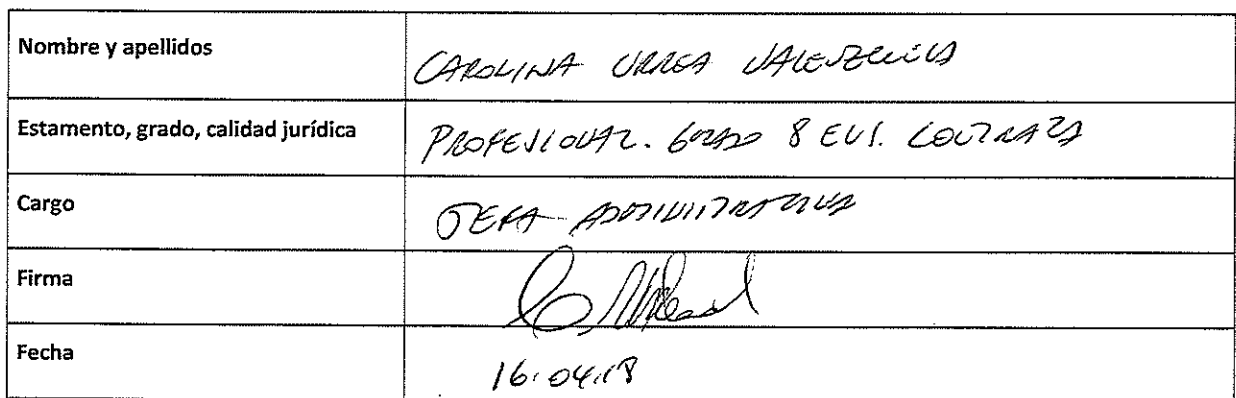 Nombre y apellidos
CAROLINA URREA VALENZUELA
Estamento, grado, calidad jurídica
PROFESIONAL. GRADO 8 EUS. CONTRATA
Cargo
JEFA ADMINISTRATIVA
Firma
Fecha
16.04.18